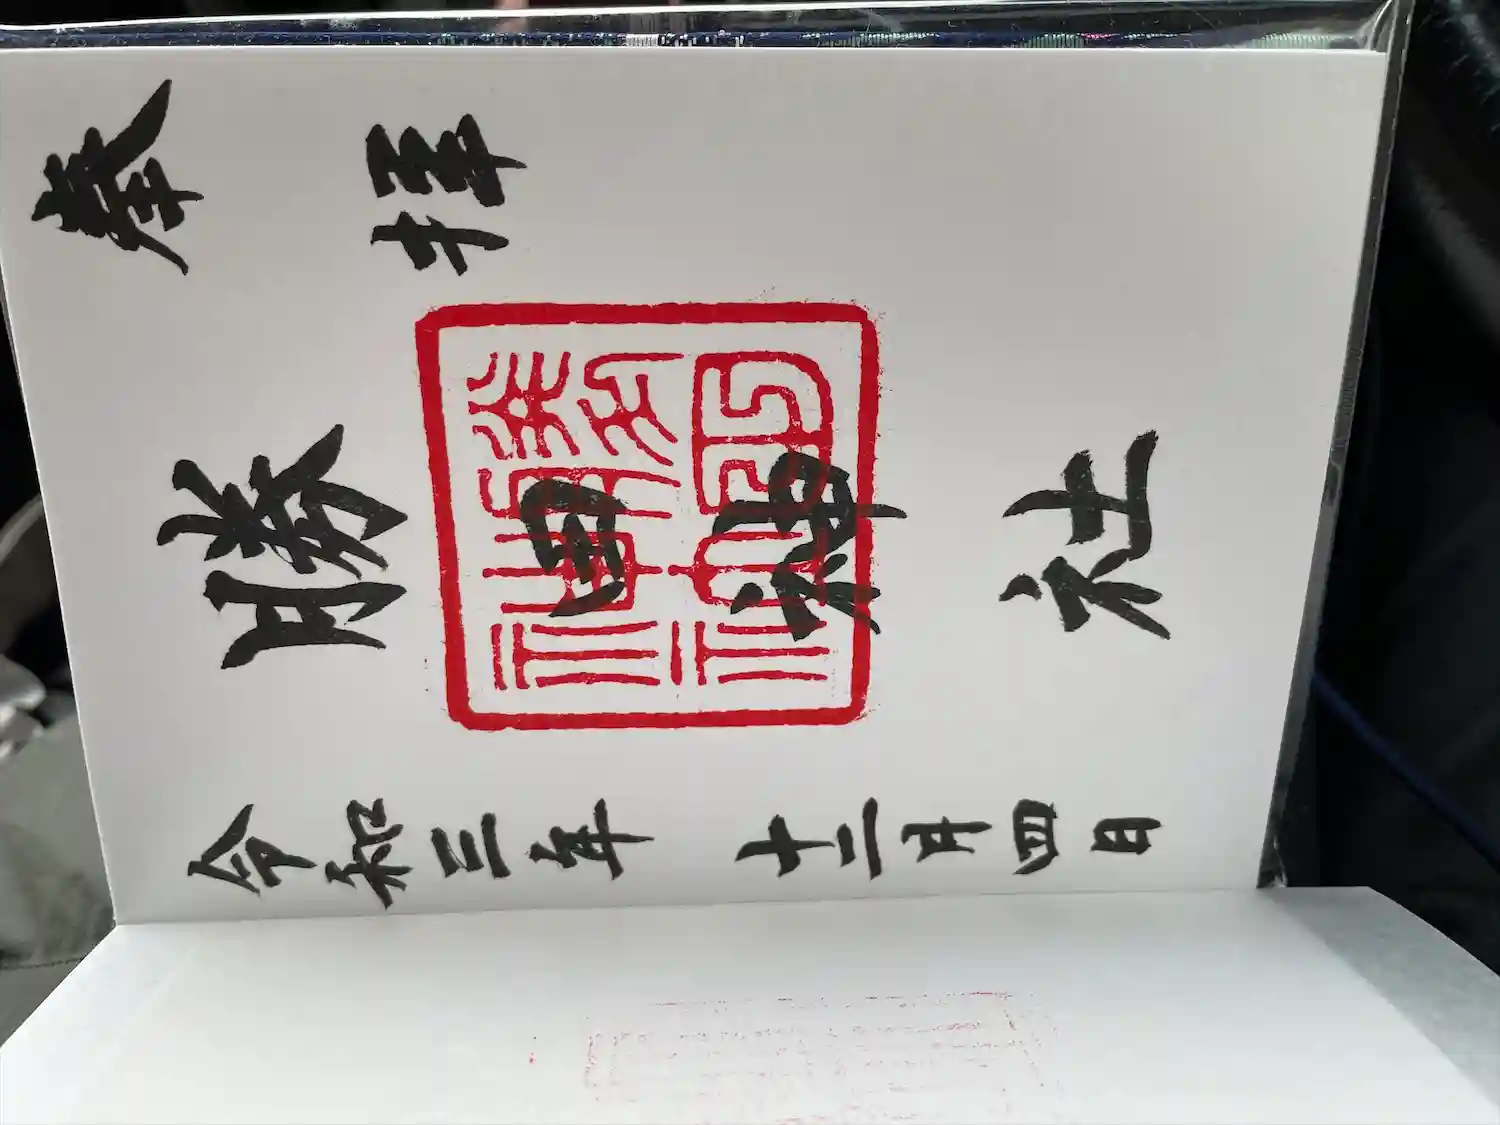 奉拝
勝岡神社
令和三年十二月四日